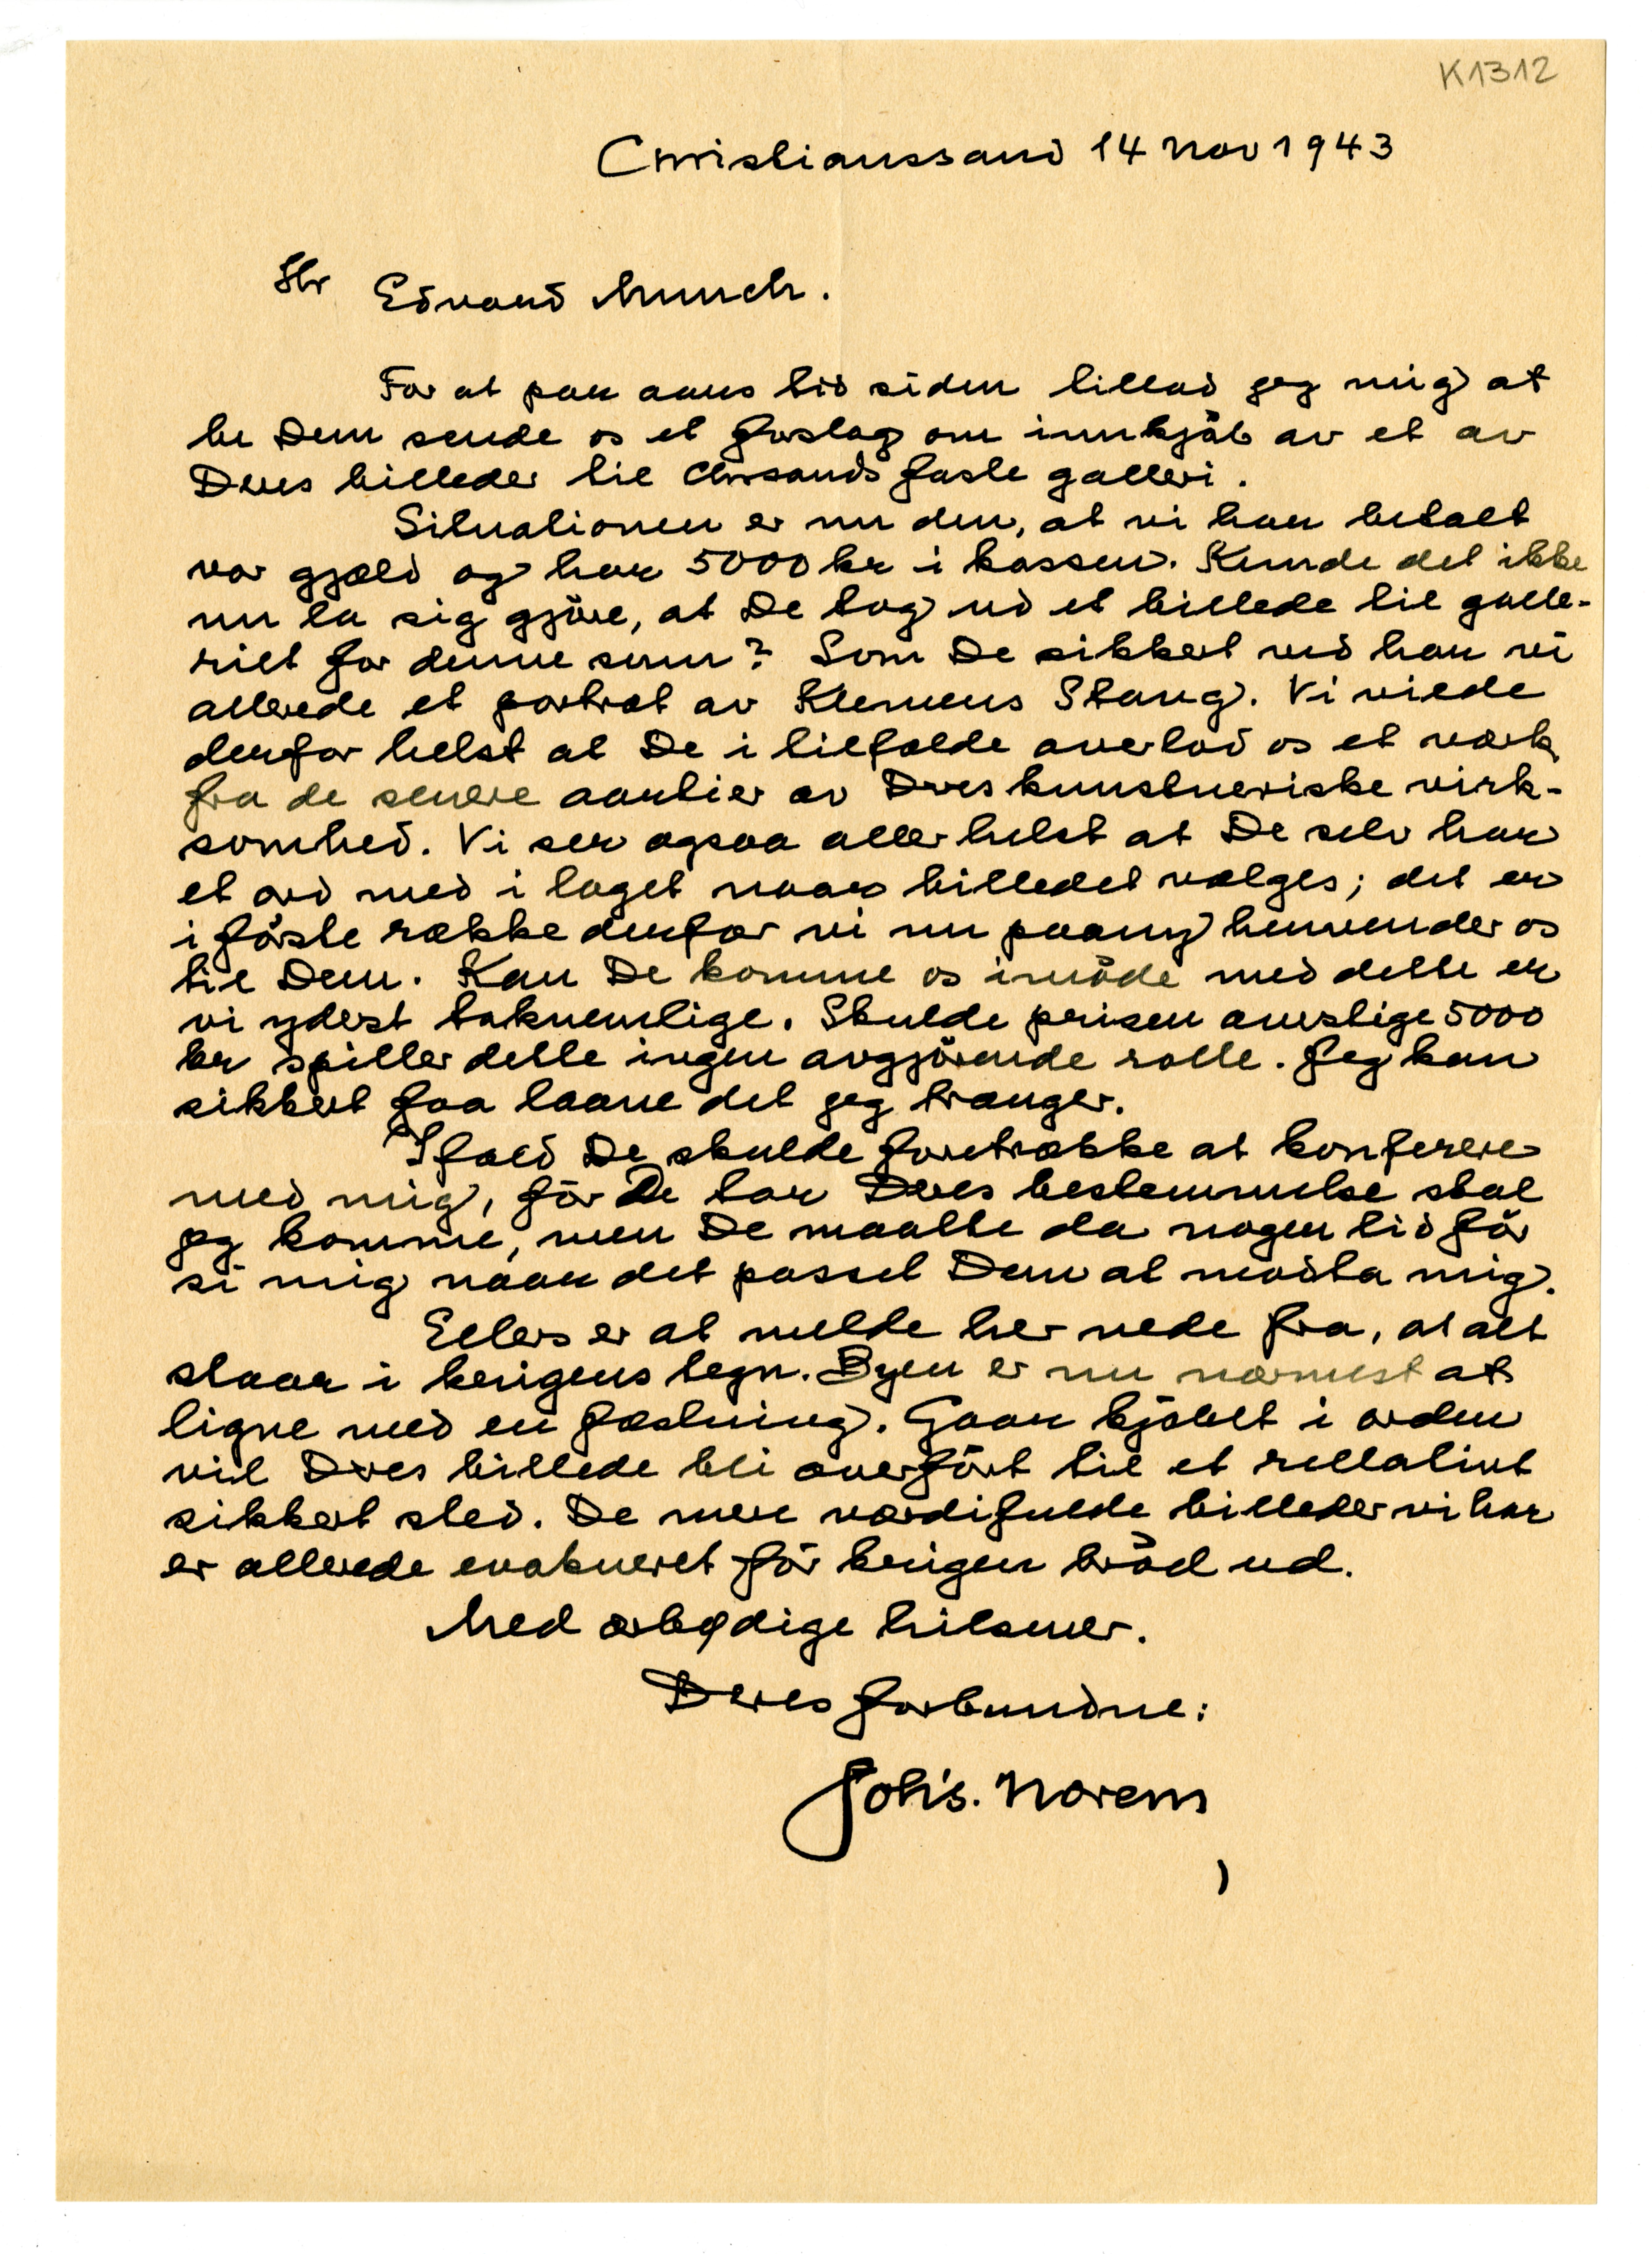 K1312
Christianssand 14 Nov 1943
Hr Edvard Munch.
For et par aars tid siden tillod jeg mig at
be Dem sende os et forslag om innkjöb av et av
Deres billeder til Chrsands faste galleri.
Situationen er nu den, at vi har betalt
vor gjæld og har 5000 kr i kassen. Kunde det ikke
nu la sig gjöre, at De tog ud et billede til galle-
riet for denne sum? Som De sikkert ved har vi
allerede et portræt av Klemens Stang. Vi vilde
derfor helst at De i tilfælde overlod os et værk
fra de senere aartier av Deres kunstneriske virk-
somhed. Vi ser ogsaa aller helst at De selv har
et ord med i laget naar billedet vælges; det er
i förste række derfor vi nu paany henvender os
til Dem. Kan De komme os imöde med dette er
vi yderst taknemlige. Skulde prisen overstige 5000
kr spiller dette ingen avgjörende rolle. Jeg kan
sikkert faa laane det jeg trænger.
Ifald De skulde foretrække at konferere
med mig, för De tar Deres bestemmelse skal
jeg komme, men De maatte da nogen tid för
si mig naar det passet Dem at modta mig.
Ellers er at melde her nede fra, at alt
staar i krigens tegn. Byen er nu nærmest at
ligne med en fæstning. Gaar kjöbet i orden
vil Deres billede bli overfört til et rellativt
sikkert sted. De mere værdifulde billeder vi har
er allerede evakueret för krigen bröd ud.
Med ærbødige hilsener.
Deres forbundne:
Joh's. Norem